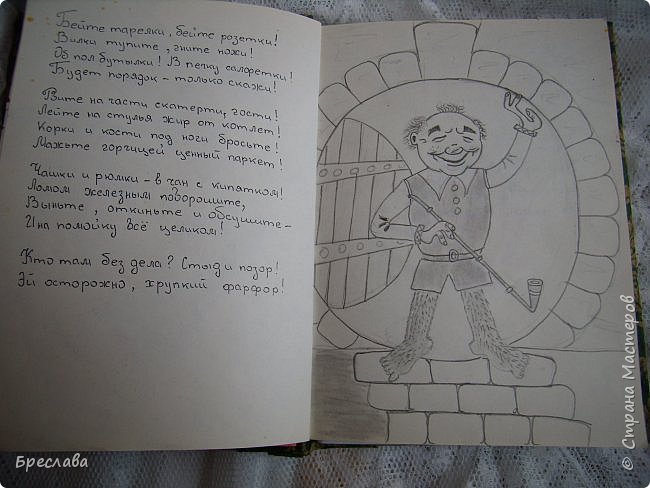 Бейте тарелки, бейте розетки!
Вилки тупите, гните ножи!
Об пол бутылки! В печку салфетки!
Будет порядок - только скажи!
Рвите на части скатерти, гости!
Лейте на стулья жир от котлет!
Корки и кости под ноги бросьте!
Мажьте горчицей ценный паркет!
Чашки и рюмки - в чан с кипятком!
Ломом железным поворошите,
Выньте, откиньте и обсушите -
И на помойку всё целиком!
Кто там без дела? Стыд и позор!
Эй осторожно, хрупкий фарфор!
Бреслава
© Страна Мастеров